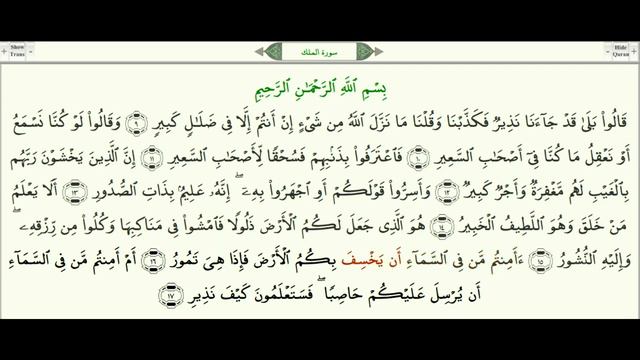 Show Trans
سورة الملك
Hide Quran
بِسْمِ ٱللَّهِ ٱلرَّحْمَـٰنِ ٱلرَّحِيمِ
قَالُوا۟ بَلَىٰ قَدْ جَآءَنَا نَذِيرٌۭ فَكَذَّبْنَا وَقُلْنَا مَا نَزَّلَ ٱللَّهُ مِن شَىْءٍ إِنْ أَنتُمْ إِلَّا فِى ضَلَـٰلٍۢ كَبِيرٍۢ ۝٩ وَقَالُوا۟ لَوْ كُنَّا نَسْمَعُ
أَوْ نَعْقِلُ مَا كُنَّا فِىٓ أَصْحَـٰبِ ٱلسَّعِيرِ ۝١٠ فَٱعْتَرَفُوا۟ بِذَنۢبِهِمْ فَسُحْقًۭا لِّأَصْحَـٰبِ ٱلسَّعِيرِ ۝١١ إِنَّ ٱلَّذِينَ يَخْشَوْنَ رَبَّهُم
بِٱلْغَيْبِ لَهُم مَّغْفِرَةٌۭ وَأَجْرٌۭ كَبِيرٌۭ ۝١٢ وَأَسِرُّوا۟ قَوْلَكُمْ أَوِ ٱجْهَرُوا۟ بِهِۦٓ ۖ إِنَّهُۥ عَلِيمٌۢ بِذَاتِ ٱلصُّدُورِ ۝١٣ أَلَا يَعْلَمُ
مَنْ خَلَقَ وَهُوَ ٱللَّطِيفُ ٱلْخَبِيرُ ۝١٤ هُوَ ٱلَّذِى جَعَلَ لَكُمُ ٱلْأَرْضَ ذَلُولًۭا فَٱمْشُوا۟ فِى مَنَاكِبِهَا وَكُلُوا۟ مِن رِّزْقِهِۦ ۖ
وَإِلَيْهِ ٱلنُّشُورُ ۝١٥ ءَأَمِنتُم مَّن فِى ٱلسَّمَآءِ أَن يَخْسِفَ بِكُمُ ٱلْأَرْضَ فَإِذَا هِىَ تَمُورُ ۝١٦ أَمْ أَمِنتُم مَّن فِى ٱلسَّمَآءِ
أَن يُرْسِلَ عَلَيْكُمْ حَاصِبًۭا ۖ فَسَتَعْلَمُونَ كَيْفَ نَذِيرِ ۝١٧